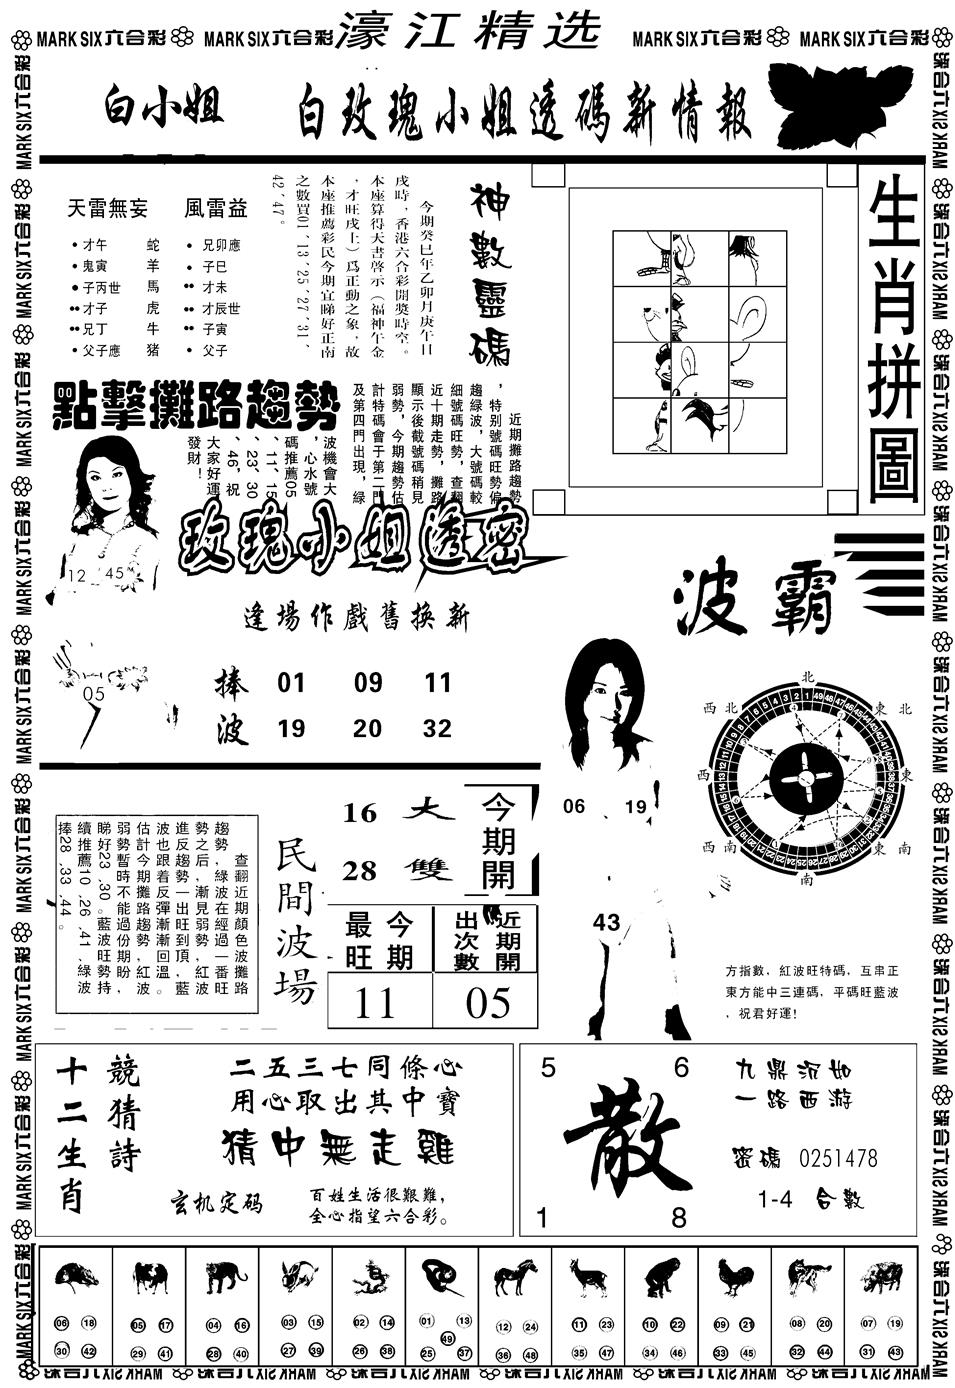 MARK SIX六合彩 MARK SIX六合彩 濠江精选 MARK SIX六合彩 MARK SIX六合彩
白小姐 白玫瑰小姐透碼新情報
生肖拼圖
神數靈碼
今期癸巳年乙卯月庚午日
戌時，香港六合彩開獎時空。
本座算得天書啓示（福神午金
，才旺戌土）爲正動之象，故
本座推薦彩民今期宜睇好正南
之數買01﹑13﹑25﹑27﹑31﹑
42﹑47。
天雷無妄 風雷益
才午 蛇 兄卯應
鬼寅 羊 子巳
子丙世 馬 才未
才子 虎 才辰世
兄丁 牛 子寅
父子應 猪 父子
點擊攤路趨勢
近期攤路趨勢
，特别號碼旺勢偏
趨綠波，大號碼較
細號碼旺勢，查翻
近十期走勢，攤路
顯示後截號碼稍見
弱勢，今期趨勢估
計特碼會于第二門
及第四門出現，綠
波機會大
，心水號
碼推薦05
、11、15
、23、30
、46，祝
大家好運
發財！
12 45
05
玫瑰小姐透密
逢場作戲舊換新
捧 01 09 11
波 19 20 32
波霸
北
西北 東北
西 東
西南 東南
南
06 19
43
方指數，紅波旺特碼，互串正
東方能中三連碼，平碼旺藍波
，祝君好運！
查翻近期顏色波攤路
趨勢，綠波在經過一番旺
勢之后，漸見弱勢，紅波
進反趨勢一出旺到頂，藍
波也跟着反彈漸漸回溫。
估計今期攤路趨勢紅波
弱勢暫時不能過份期盼，
睇好23﹑30。藍波旺勢持
續推薦10﹑26﹑41﹑綠波
捧28﹑33﹑44。
民間波場
16 大 今期開
28 雙
最旺 今期 出次數 近期開
11 05
十二生肖
競猜詩
二五三七同條心
用心取出其中寶
猜中無走雞
玄机定码
百姓生活很艱難，
全心指望六合彩。
5 6
散
1 8
九鼎沉如
一路西游
密碼 0251478
1-4 合數
06 18 05 17 04 16 03 15 02 14 01 13 12 24 11 23 10 22 09 21 08 20 07 19
49
30 42 29 41 28 40 27 39 26 38 25 37 36 48 35 47 34 46 33 45 32 44 31 43